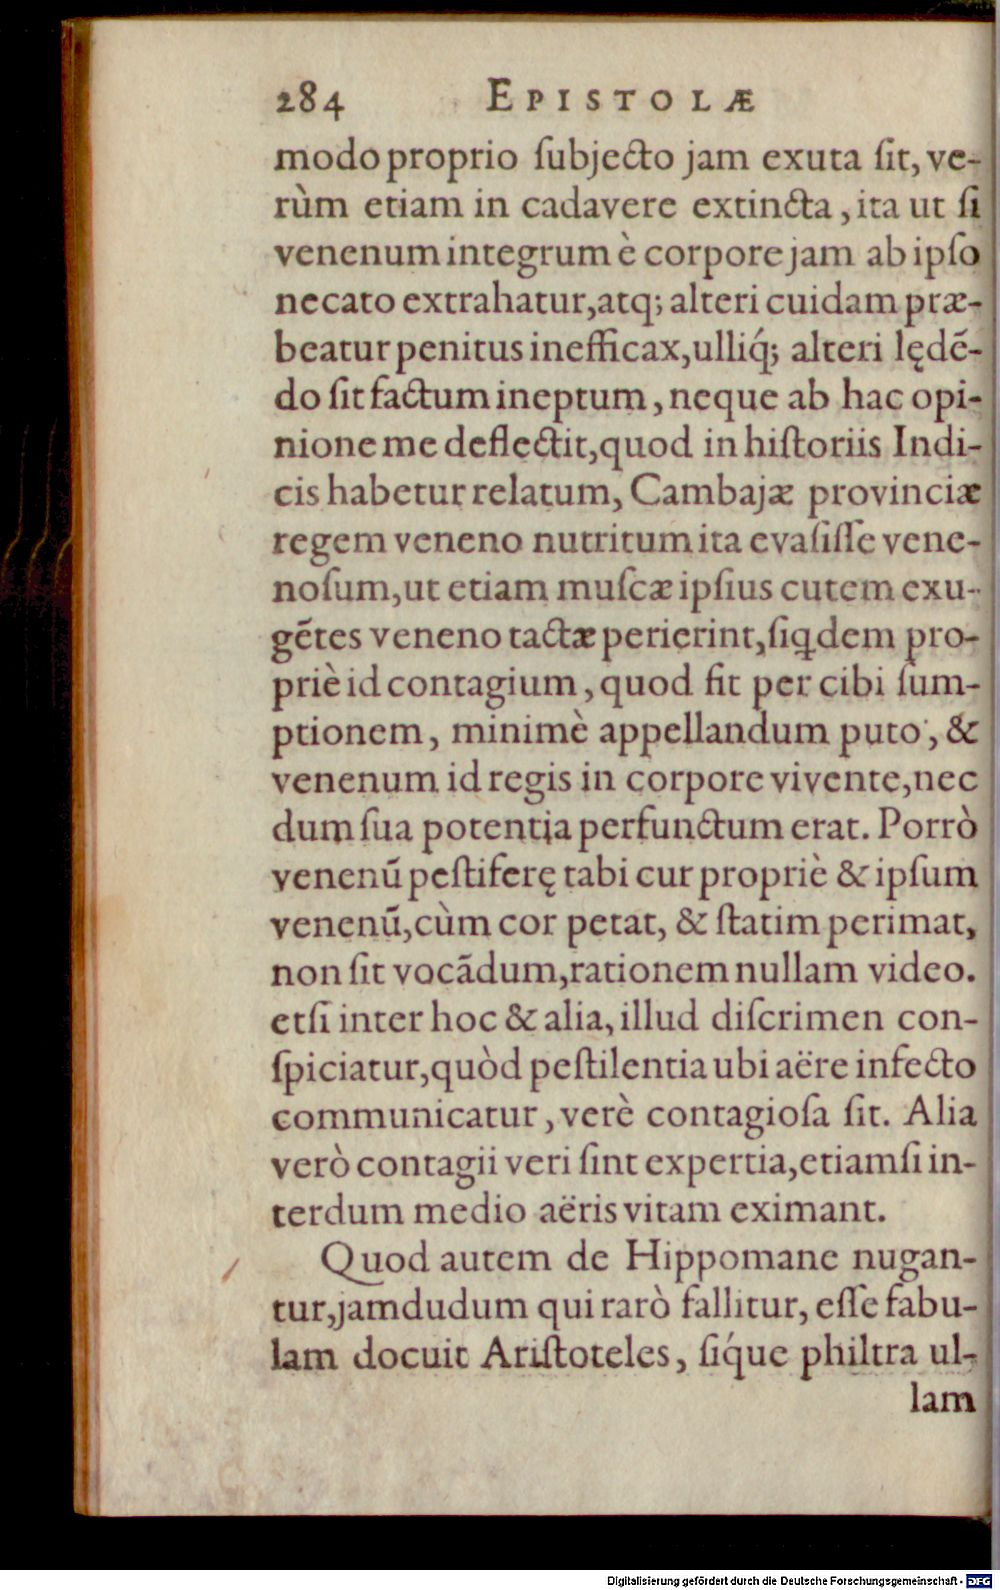 284 EPISTOLÆ
modo proprio ſubjecto jam exuta ſit, ve-
rùm etiam in cadavere extincta, ita ut ſi
venenum integrum è corpore jam ab ipſo
necato extrahatur, atq; alteri cuidam præ-
beatur penitus inefficax, ulliq́; alteri lędē-
do ſit factum ineptum, neque ab hac opi-
nione me deflectit, quod in hiſtoriis Indi-
cis habetur relatum, Cambajæ provinciæ
regem veneno nutritum ita evaſiſſe vene-
noſum, ut etiam muſcæ ipſius cutem exu-
gētes veneno tactæ perierint, ſiqdem pro-
priè id contagium, quod fit per cibi ſum-
ptionem, minimè appellandum puto, &
venenum id regis in corpore vivente, nec
dum ſua potentia perfunctum erat. Porrò
venenū peſtiferę tabi cur propriè & ipſum
venenū, cùm cor petat, & ſtatim perimat,
non ſit vocādum, rationem nullam video.
etſi inter hoc & alia, illud diſcrimen con-
ſpiciatur, quòd peſtilentia ubi aëre infecto
communicatur, verè contagioſa ſit. Alia
verò contagii veri ſint expertia, etiamſi in-
terdum medio aëris vitam eximant.
Quod autem de Hippomane nugan-
tur, jamdudum qui rarò fallitur, eſſe fabu-
lam docuit Ariſtoteles, ſiq́ue philtra ul-
lam
Digitalisierung gefördert durch die Deutsche Forschungsgemeinschaft - DFG